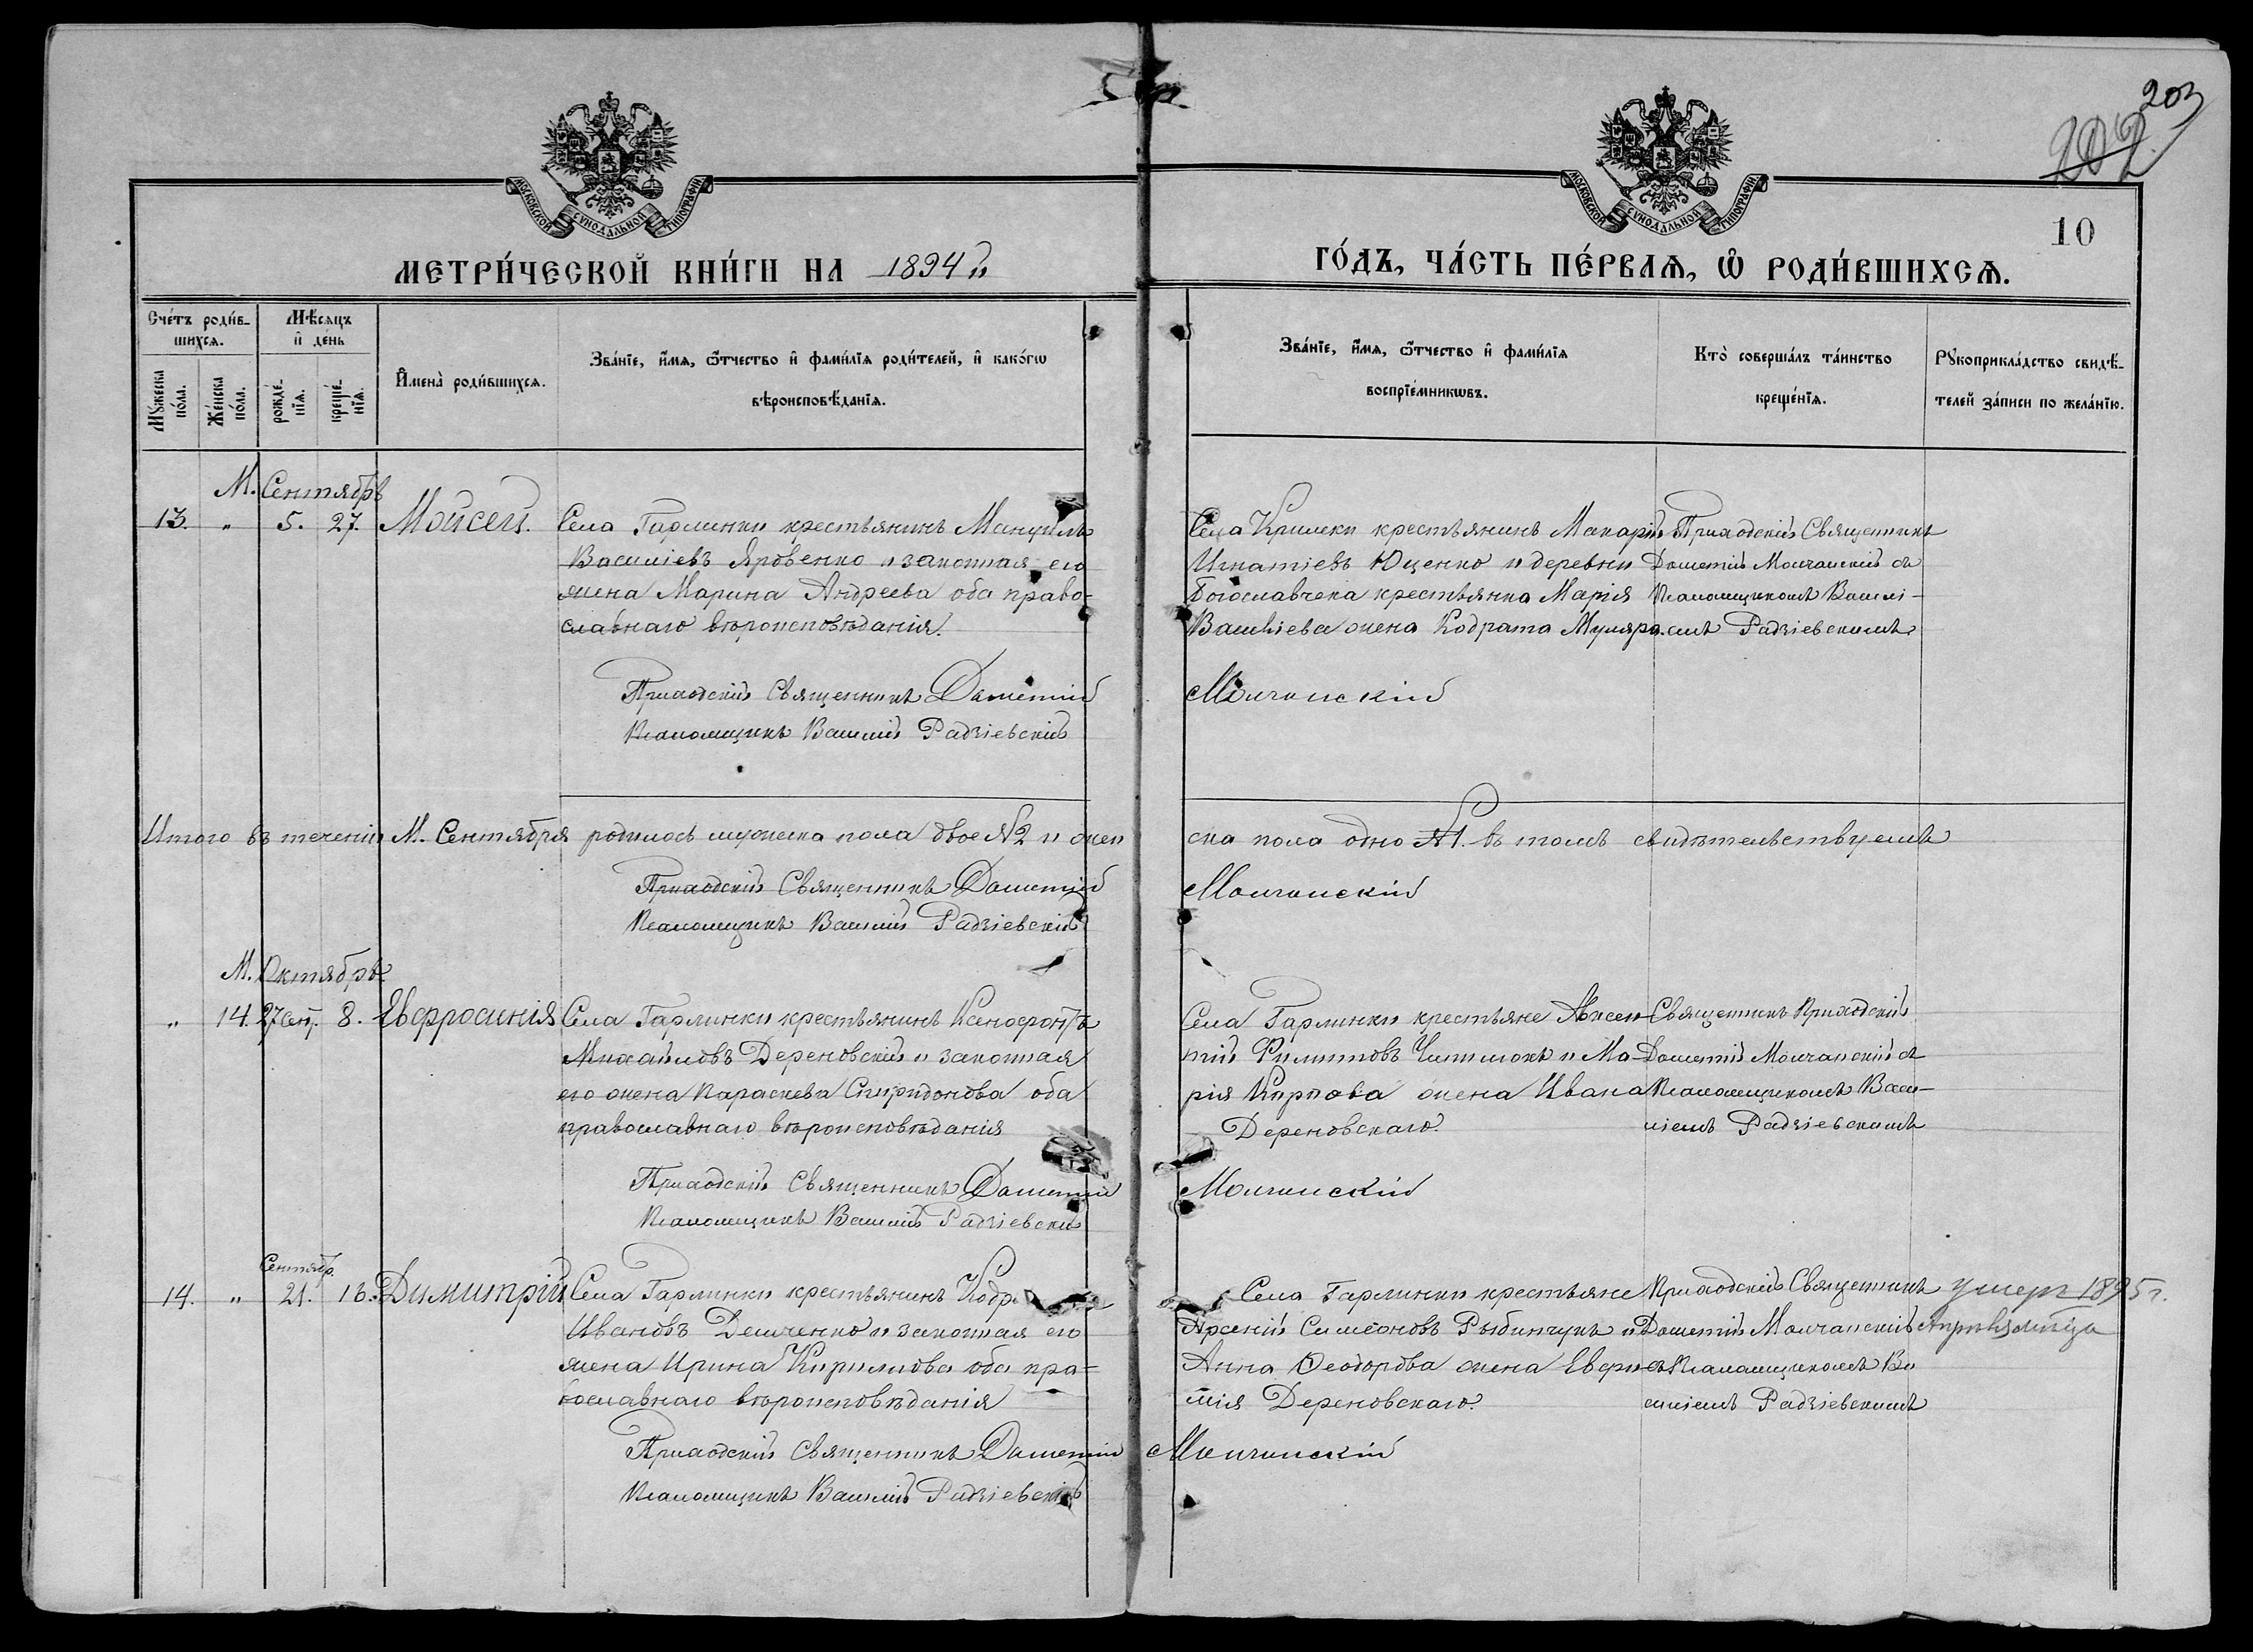 203
202
10
МОСКОВСКОЙ СѴНОДАЛЬНОЙ ТИПОГРАФІИ
МОСКОВСКОЙ СѴНОДАЛЬНОЙ ТИПОГРАФІИ
МЕТРИ́ЧЕСКОЙ КНИ́ГИ НА 1894й
ГО́ДЪ, ЧА́СТЬ ПЕ́РВАѦ, Ѡ РОДИ́ВШИХСѦ.
Сче́тъ роди́в-
шихсѧ.
Мꙋ́жеска
по́ла.
Же́нска
по́ла.
Мѣ́сѧцъ
и де́нь
рожде́-
нїѧ.
креще́-
нїѧ.
Имена̀ роди́вшихсѧ.
Зва́нїе, и́мѧ, ѻ́тчество и фами́лїѧ роди́телей, и како́гѡ
вѣроисповѣ́данїѧ.
Зва́нїе, и́мѧ, ѻ́тчество и фами́лїѧ
воспрїе́мникѡвъ.
Кто̀ соверша́лъ та́инство
креще́нїѧ.
Рꙋкоприкла́дство свидѣ́-
телей за́писи по жела́нїю.
М. Сентябрь
13. " 5. 27. Мойсей.
Села Гарлинки крестьянинъ Мануилъ
Василіевъ Яровенко и законная его
жена Марина Андреева оба право-
славнаго вѣроисповѣданія.
Приходскій Священникъ Дометій Молчанскій
Псаломщикъ Василій Радзіевскій
Села Кришеки крестьянинъ Макарій
Игнатіевъ Юценко и деревни
Богославчека крестьянка Марія
Василіева жена Кодрата Муляра.
Приходскій Священникъ
Дометій Молчанскій съ
псаломщикомъ Василі-
емъ Радзіевскимъ
Итого въ теченіи М. Сентября родилось мужеска пола двое №2 и жен
ска пола одно №1. въ томъ свидѣтельствуемъ
Приходскій Священникъ Дометій Молчанскій
Псаломщикъ Василій Радзіевскій
М. Октябрь
" 14. 27 сент. 8. Евфросинія
Села Гарлинки крестьянинъ Ксенофонтъ
Михайловъ Дереновскій и законная
его жена Параскева Спиридонова оба
православнаго вѣроисповѣданія
Приходскій Священникъ Дометій Молчанскій
Псаломщикъ Василій Радзіевскій
Села Гарлинки крестьяне Авксен-
тій Филипповъ и Ма-
рія Карпова жена Ивана
Дереновскаго.
Священникъ Приходскій
Дометій Молчанскій съ
Псаломщикомъ Васи-
ліемъ Радзіевскимъ
Сентябр.
14. " 21. 16. Димитрій
Села Гарлинки крестьянинъ Кодр
Ивановъ Демченко и законная его
жена Ирина Кириллова оба пра-
вославнаго вѣроисповѣданія
Приходскій Священникъ Дометій Молчанскій
Псаломщикъ Василій Радзіевскій
Села Гарлинки крестьяне
Арсеній Симеоновъ Рыбинчукъ и
Анна Ѳеодорова жена Евфи-
мія Дереновскаго.
Приходскій Священникъ
Дометій Молчанскій
съ Псаломщикомъ Ва
силіемъ Радзіевскимъ
умеръ 1895 г.